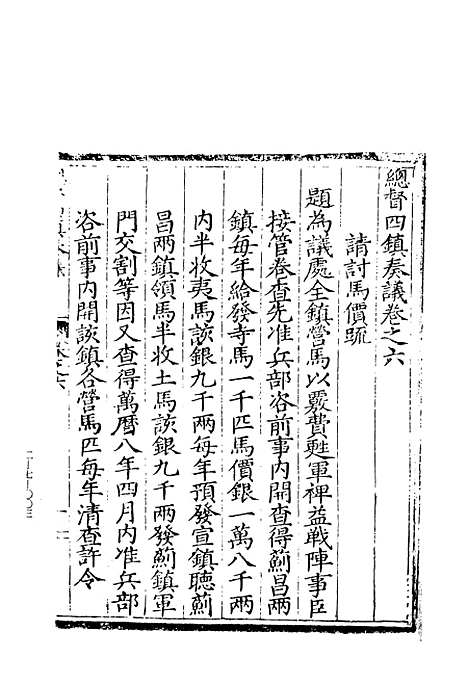 總督四鎮奏議卷之六
請討馬價疏
題為議處全鎮營馬以覈費甦軍裨益戰陣事臣
接管卷查先准兵部咨前事內開查得薊昌兩
鎮每年給發寺馬一千匹馬價銀一萬八千兩
內半收夷馬該銀九千兩每年預發宣鎮聽薊
昌兩鎮領馬半收土馬該銀九千兩發薊鎮軍
門交割等因又查得萬曆八年四月內准兵部
咨前事內開該鎮各營馬匹每年清查許令